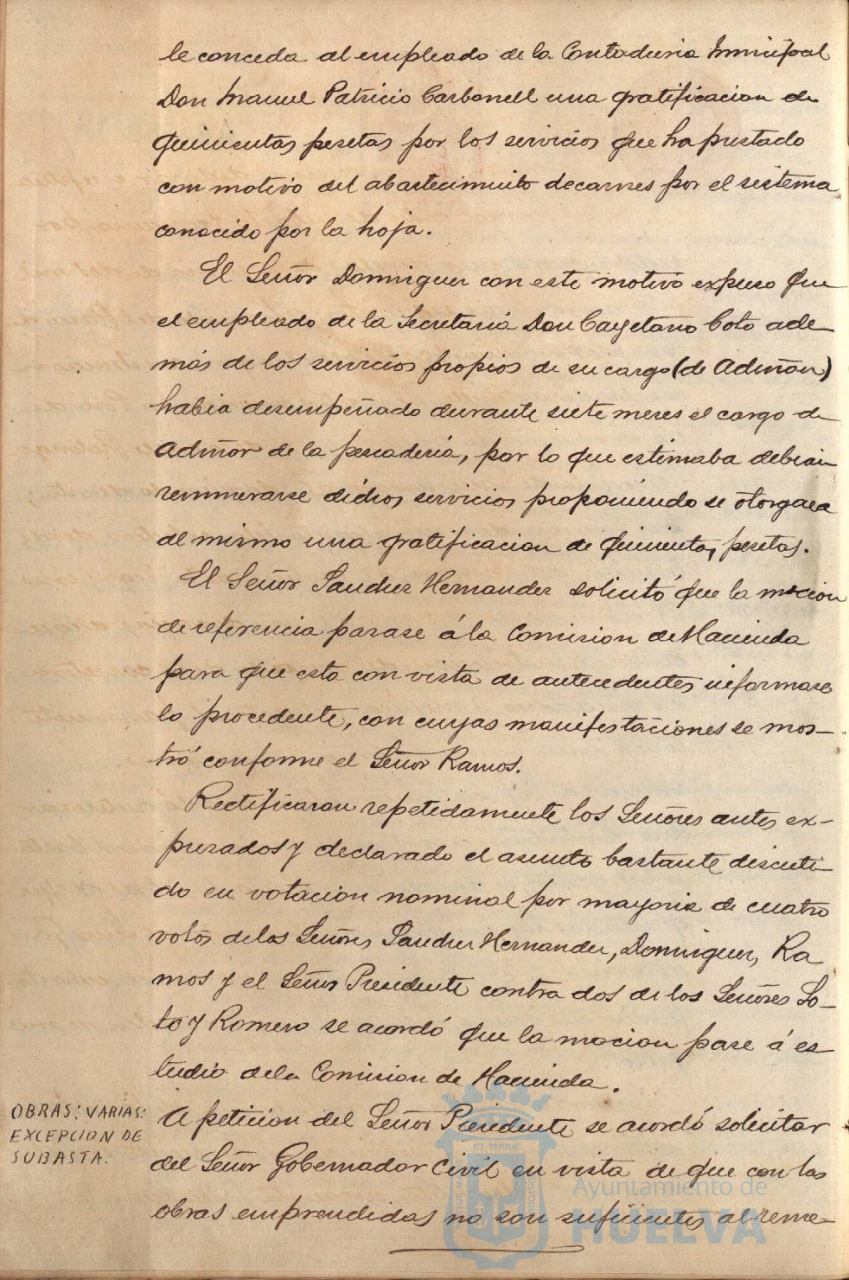 le conceda al empleado de la Contaduria Municipal
Don Manuel Patricio Carbonell una gratificacion de
quinientas pesetas por los servicios que ha prestado
con motivo del abastecimiento de carnes por el sistema
conocido por la hoja.
El Señor Dominguez con este motivo expuso que
el empleado de la Secretaria Don Cayetano Coto ade
más de los servicios propios de su cargo (de Admon)
habia desempeñado durante siete meses el cargo de
Admor de la pescaderia, por lo que estimaba debian
remunerarse dichos servicios proponiendo se otorgara
al mismo una gratificacion de quinientas pesetas.
El Señor Sanchez Hernandez solicitó que la mocion
de referencia pasase á la Comision de Hacienda
para que esta con vista de antecedentes informase
lo procedente, con cuyas manifestaciones se mos-
tró conforme el Señor Ramos.
Rectificaron repetidamente los Señores antes ex-
presados y declarado el asunto bastante discuti-
do en votacion nominal por mayoria de cuatro
votos de los Señores Sanchez Hernandez, Dominguez, Ra
mos y el Señor Presidente contra dos de los Señores So-
to y Romero se acordó que la mocion pase á es
tudio de la Comision de Hacienda.
OBRAS: VARIAS:
EXCEPCION DE
SUBASTA.
A peticion del Señor Presidente se acordó solicitar
del Señor Gobernador Civil en vista de que con las
obras emprendidas no son suficientes al reme-
Ayuntamiento de
HUELVA